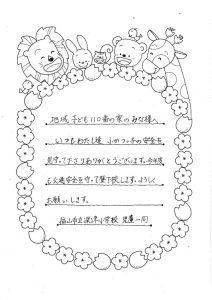 地域 子ども110番の家のみな様へ
いつもわたし達 ふかつっ子の安全を
見守って下さりありがとうございます。今年度
も交通安全を守って登下校します。よろしく
お願いします。
福山市立深津小学校 児童一同